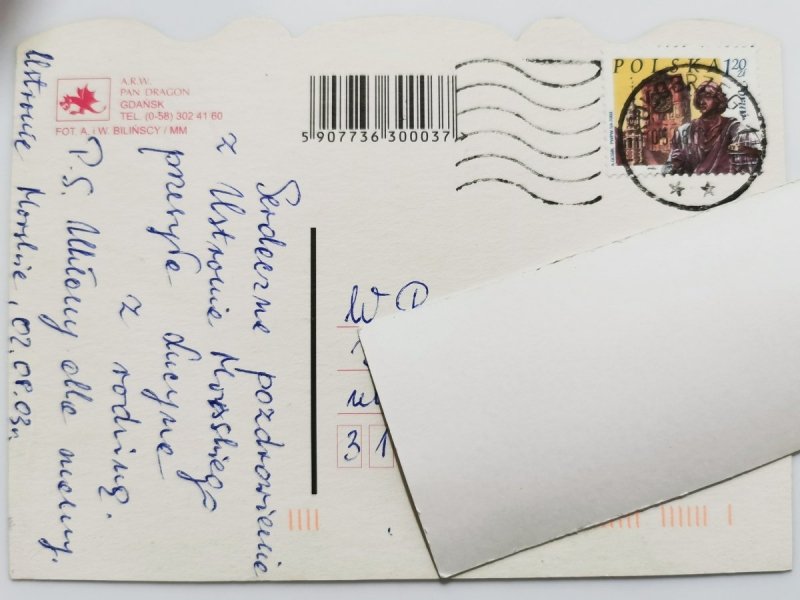 A.R.W.
PAN DRAGON
GDAŃSK
TEL. (0-58) 302 41 60
FOT A. i W. BILIŃSCY / MM
5 907736 300037
POLSKA 1,20 zł
Serdeczne pozdrowienia
z Ustronia Morskiego
przesyła Lucyna
z rodziną.
P.S. Ulubiony dla mamy.
Ustronie Morskie, 02.08.03r.
W P
ul
3 1